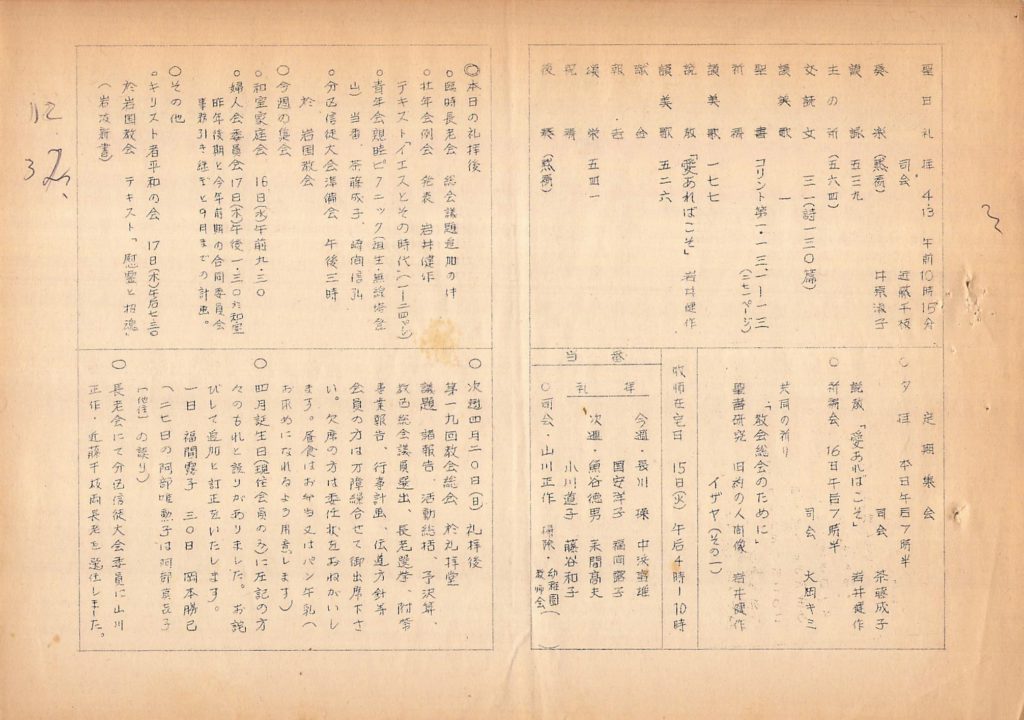 聖日礼拝 4.13 午前10時15分
司会 近藤千枝
奏楽 (黙祷) 井原淑子
讃詠 五三九
主の祈 (五六四)
交読文 三一(詩一三〇篇)
讃美歌 一
聖書 コリント第一・一三、一ー一三
(二七一ページ)
祈祷
讃美歌 一七七
説教 「愛あればこそ」 岩井健作
讃美歌 五二六
献金
報告
頌栄 五四一
祝祷
後奏 (黙祷)
定期集会
○夕拝 本日午后7時半
司会 茶藤成子
説教「愛あればこそ」 岩井健作
○祈祷会 16日午后7時半
司会 大岡キミ
共同の祈り
「教会総会のために」
聖書研究 旧約の人間像 岩井健作
イザヤ(その一)
牧師在宅日 15日(火) 午后4時ー10時
当番
礼拝
今週・長川 操 中浜 雄
国安洋子 福間露子
次週・魚谷徳男 桑間高夫
小川道子 藤谷和子
○司会・山川正作 掃除・幼稚園教師会)
◎本日の礼拝後
○臨時長老会 総会議題追加の件
○壮年会例会 発表 岩井健作
テキスト「イエスとその時代」(一ー二四ページ)
○青年会親睦ピクニック(麻里布・無線塔登
山) 当番、茶藤成子、崎岡信弘
○分区信徒大会準備会 午後三時
於 岩国教会
◎今週の集会
○和室家庭会 16日(水)午前九・三〇
○婦人会委員会17日(木)午後一・三〇於和室
昨年後期と今年前期の合同委員会
事務引き継ぎと9月までの計画。
○その他
○キリスト者平和の会 17日(木)午后七・三〇
於岩国教会 テキスト「慰霊と招魂」
(岩波新書)
○次週四月二〇日(日)礼拝後
第一九回教会総会 於礼拝堂
議題 諸報告、活動総括、予決算、
教区総会議員選出、長老選挙、附帯
事業報告、行事計画、伝道方針等
会員の方は万障繰合せて御出席下さ
い。欠席の方は委任状をおねがいし
ます。昼食はお弁当又はパン牛乳(
お求めになれるよう用意します)
○四月誕生日(現住会員のみ)に左記の方
々のもれと誤りがありました。お詫
びして追加と訂正をいたします。
一日 福間露子 三〇日 岡本勝己
(二七日の阿部唯勲子は阿部真岳子
(他住)の誤り)
○長老会にて分区信徒大会委員に山川
正作・近藤千枝両長老を選任しました。